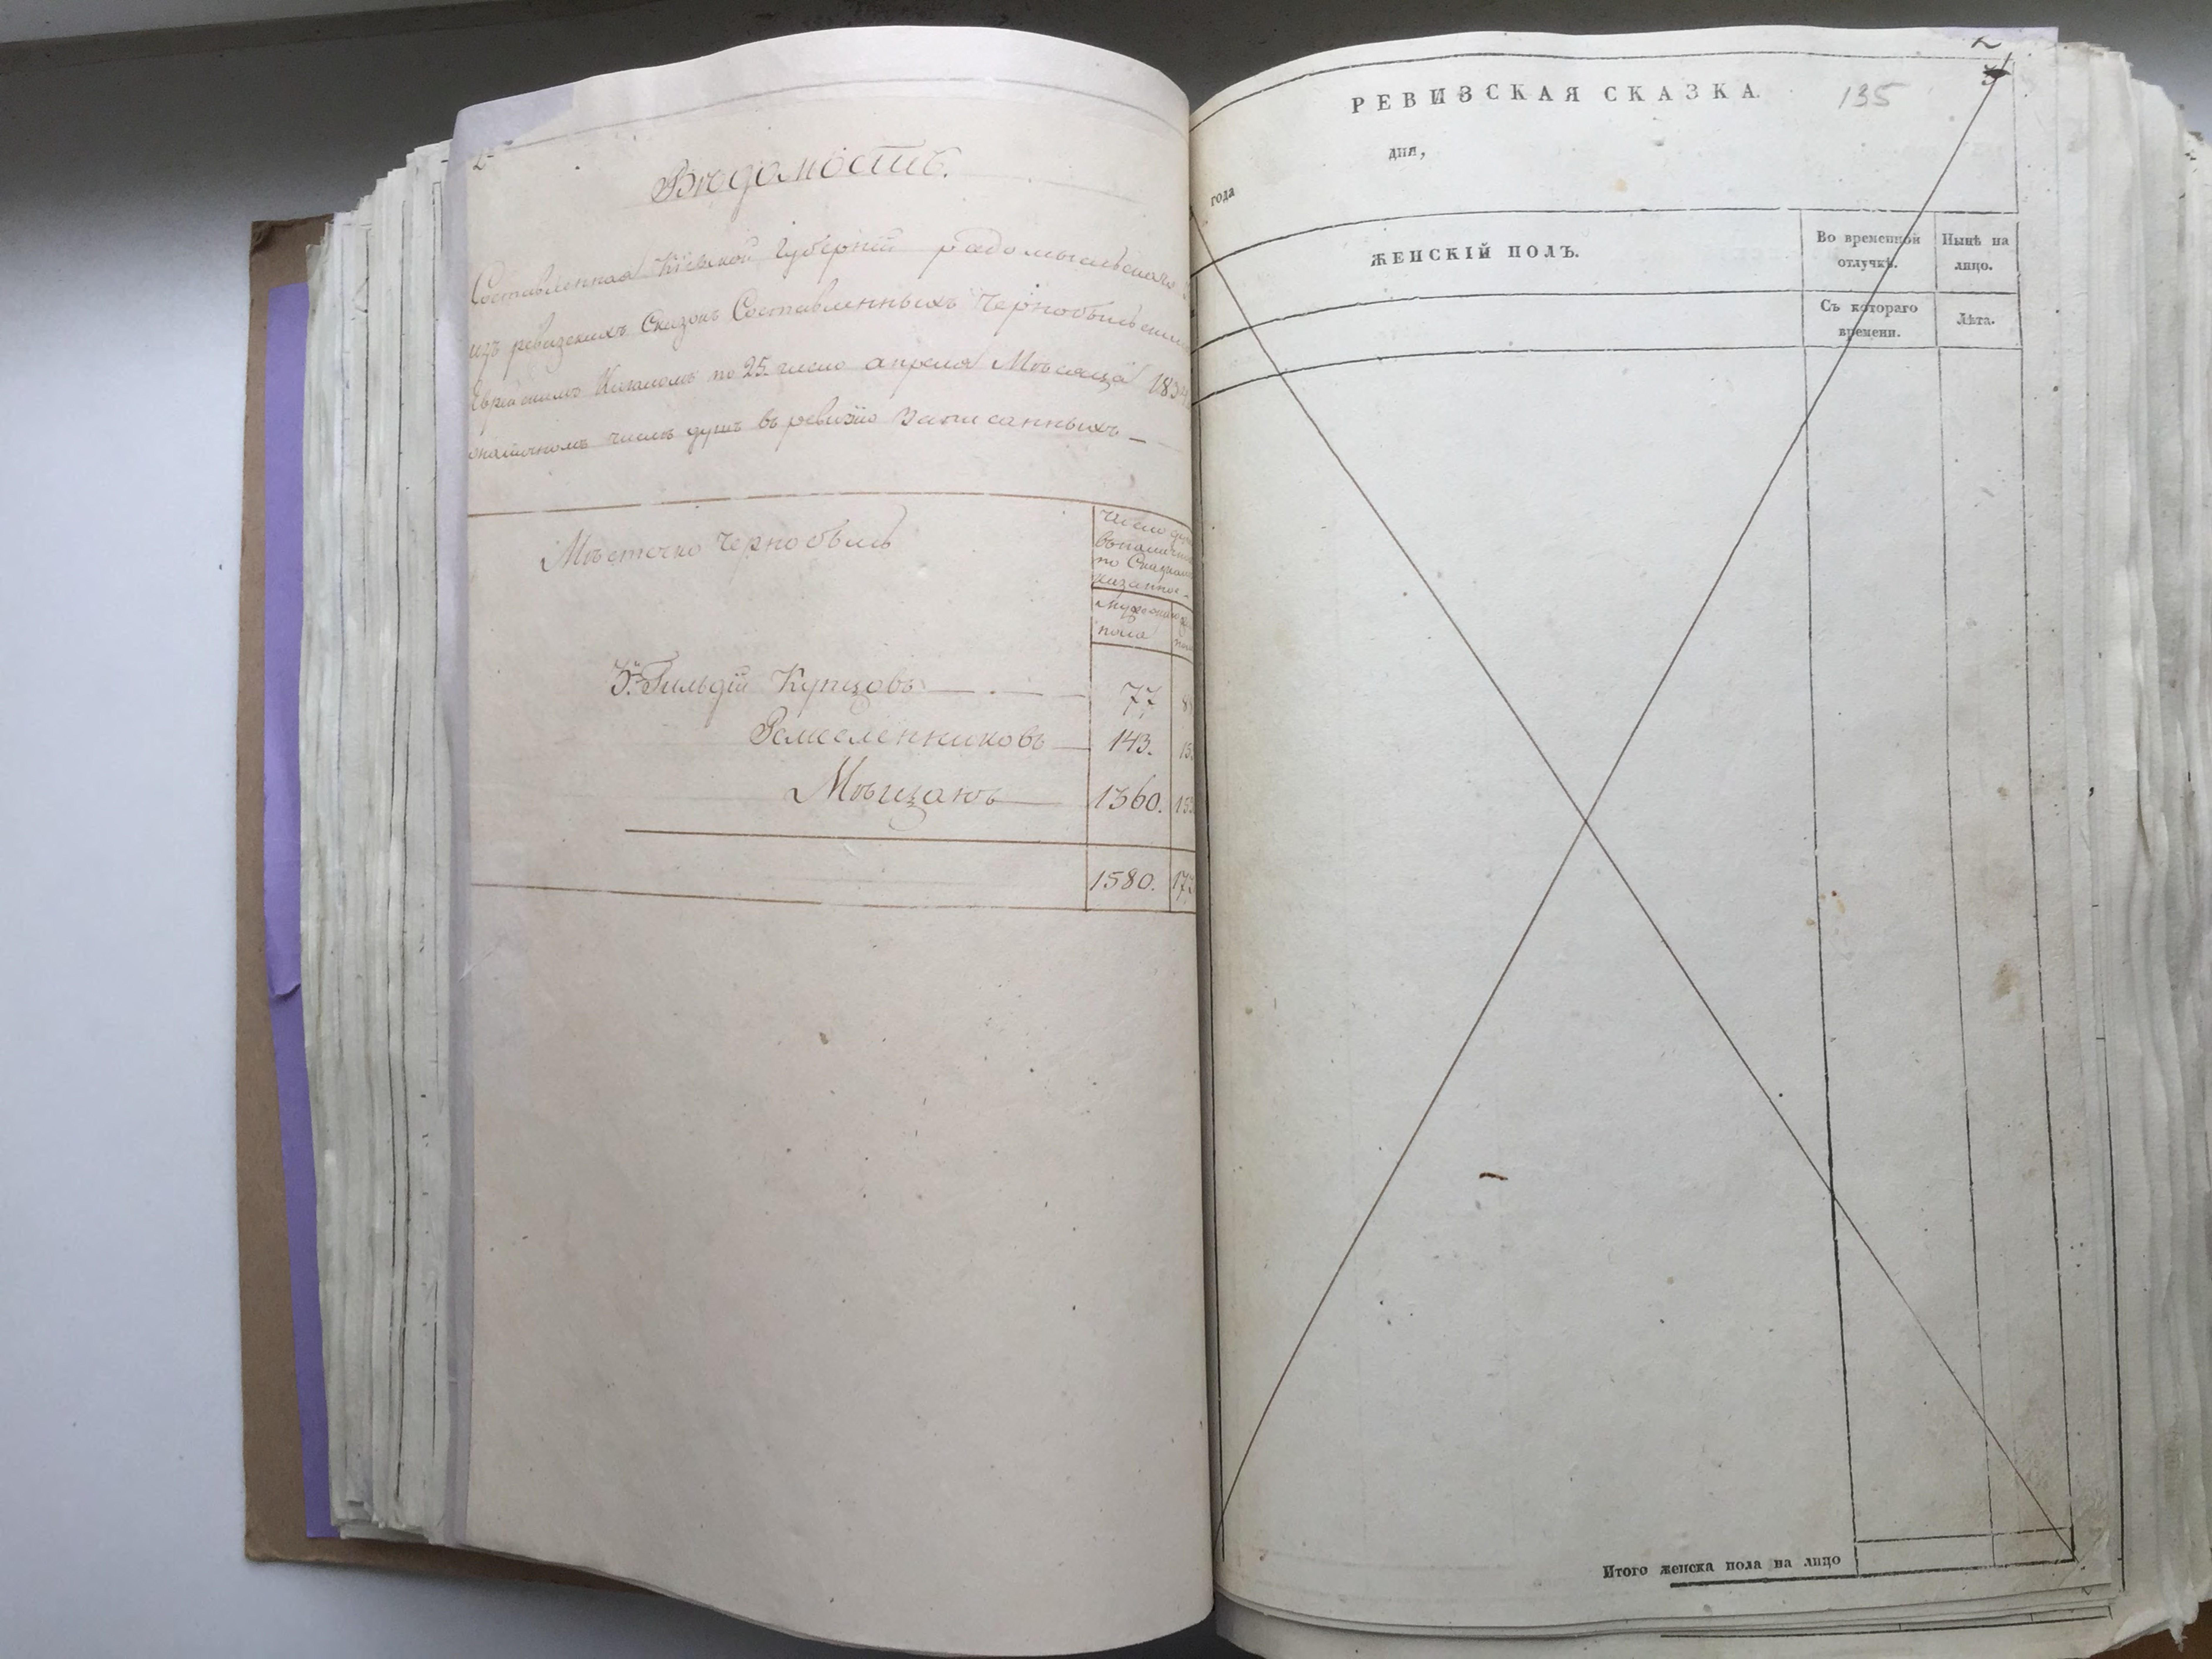 Вѣдомость.
Составленная Кіевской Губерніи радомысльскаго
изъ ревизскихъ Сказокъ Составленныхъ Чернобыльским
Еврейскимъ Кагаломъ по 25. число апреля Мѣсяца 1834
оналичномъ числѣ душъ въ ревизію Записанныхъ —
Мѣстечко Чернобыль
Число ду
въналичн
по Сказкам
казанное
Мужеска
пола
3й Гильдіи Купцовъ — 77 8
Ремесленниковъ — 143. 15
Мѣщанъ — 1360. 153
1580. 177
2
РЕВИЗСКАЯ СКАЗКА. 135
дня,
года
ЖЕНСКІЙ ПОЛЪ.
Во временной отлучкѣ.
Нынѣ на лицо.
Съ котораго времени.
Лѣта.
Итого женска пола на лицо